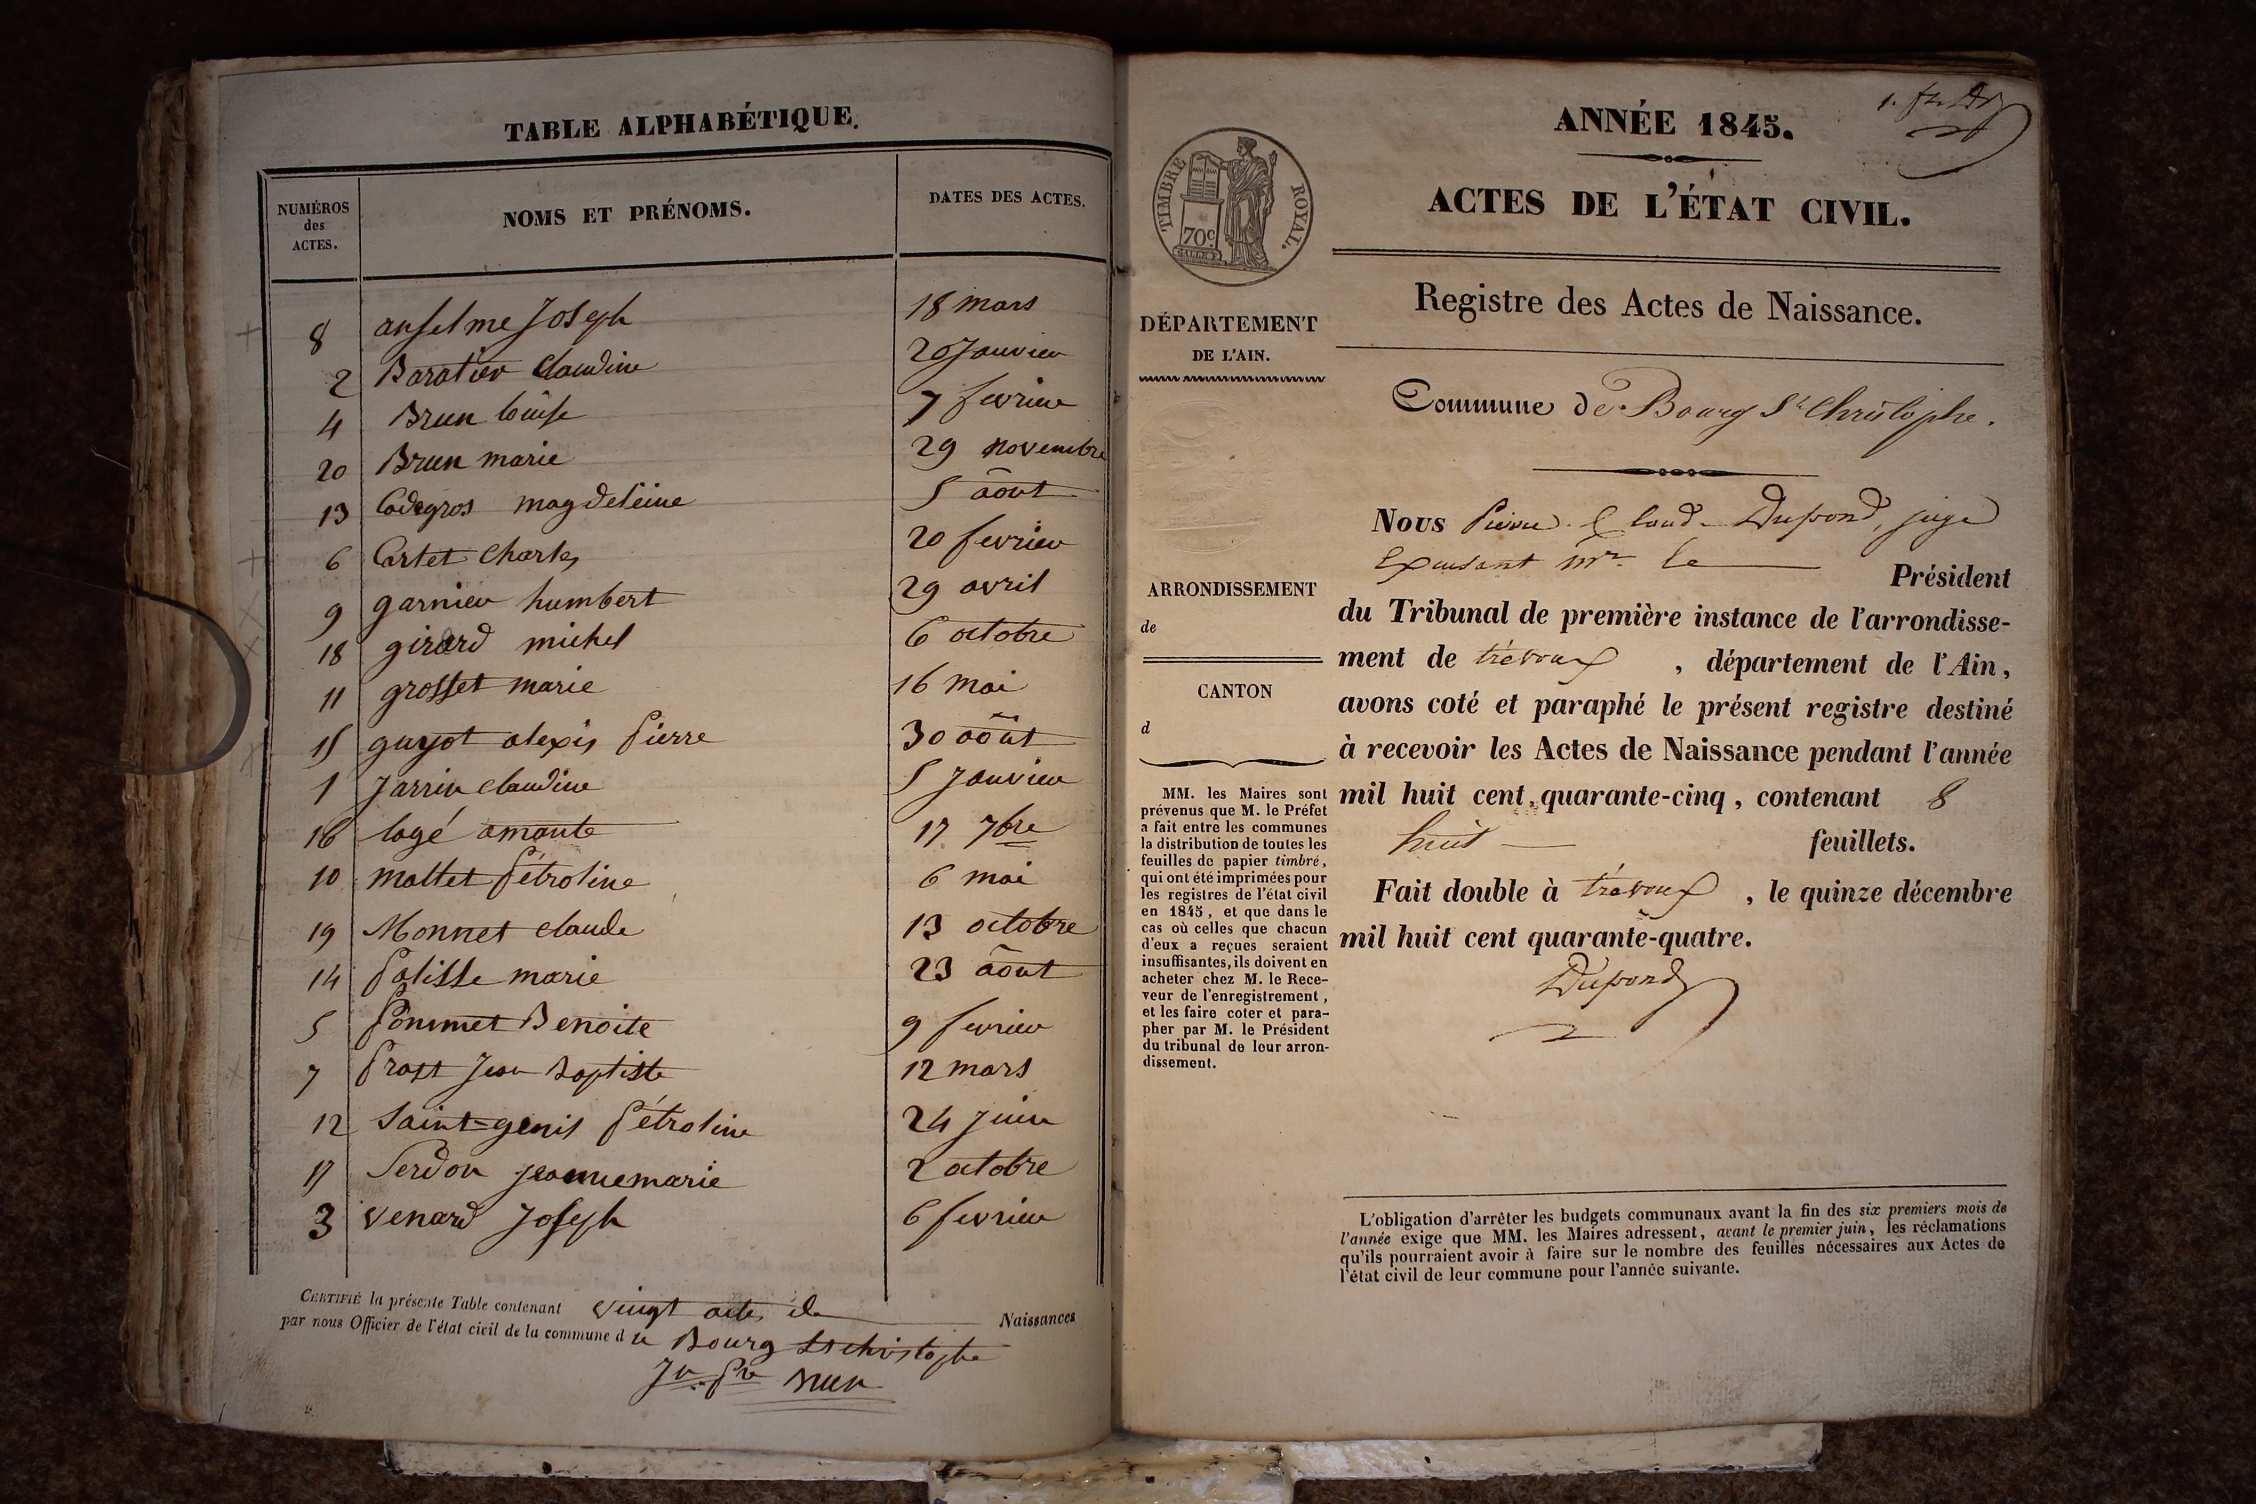 TABLE ALPHABÉTIQUE.
NUMÉROS des ACTES. NOMS ET PRÉNOMS. DATES DES ACTES.
8 anselme Joseph 18 mars
2 Baratier Claudine 20 Janvier
4 Brun Louise 7 fevrier
20 Brun marie 29 novembre
13 Cadegros magdeleine 5 août
6 Cartet Charles 20 fevrier
9 garnier humbert 29 avril
18 girard michel 6 octobre
11 grosset marie 16 mai
15 guyot alexis Pierre 30 août
1 Jarrin claudine 5 Janvier
16 logé amante 17 7bre
10 mallet Pétroline 6 mai
19 Monnet claude 13 octobre
14 Palisse marie 23 août
5 Pommet Benoite 9 fevrier
7 Prost Jean Baptiste 12 mars
12 Saint-genis Pétroline 24 Juin
17 Serdon jeannemarie 2 octobre
3 venard Joseph 6 fevrier
CERTIFIÉ la présente Table contenant vingt actes de Naissances
par nous Officier de l'état civil de la commune de Bourg St christophe
Jn Pre Brun
1. f
TIMBRE ROYAL.
70c
DÉPARTEMENT
DE L'AIN.
ARRONDISSEMENT
de
CANTON
d
MM. les Maires sont
prévenus que M. le Préfet
a fait entre les communes
la distribution de toutes les
feuilles de papier timbré,
qui ont été imprimées pour
les registres de l'état civil
en 1845, et que dans le
cas où celles que chacun
d'eux a reçues seraient
insuffisantes, ils doivent en
acheter chez M. le Rece-
veur de l'enregistrement,
et les faire coter et para-
pher par M. le Président
du tribunal de leur arron-
dissement.
ANNÉE 1845.
ACTES DE L'ÉTAT CIVIL.
Registre des Actes de Naissance.
Commune de Bourg St Christophe.
Nous Pierre Claude Dupond, juge
Excusant Mr. le Président
du Tribunal de première instance de l'arrondisse-
ment de trévoux, département de l'Ain,
avons coté et paraphé le présent registre destiné
à recevoir les Actes de Naissance pendant l'année
mil huit cent quarante-cinq, contenant 8
huit feuillets.
Fait double à trévoux, le quinze décembre
mil huit cent quarante-quatre.
Dupond
L'obligation d'arrêter les budgets communaux avant la fin des six premiers mois de
l'année exige que MM. les Maires adressent, avant le premier juin, les réclamations
qu'ils pourraient avoir à faire sur le nombre des feuilles nécessaires aux Actes de
l'état civil de leur commune pour l'année suivante.